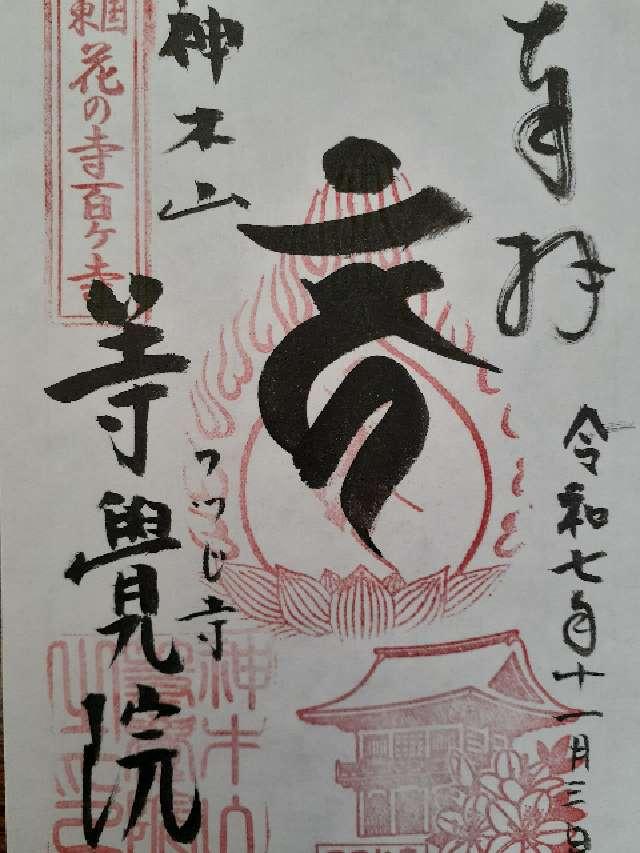 奉拝
令和七年十一月三日
神木山
つつじ寺
等覺院
東国花の寺百ヶ寺